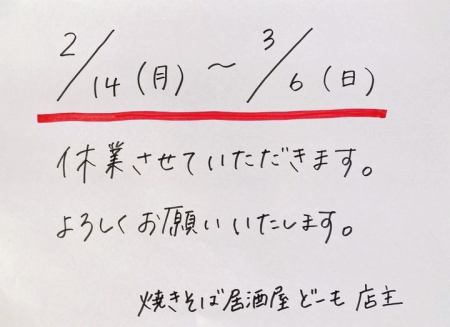 2/14(月)～3/6(日)
休業させていただきます。
よろしくお願いいたします。
焼きそば居酒屋どーも 店主